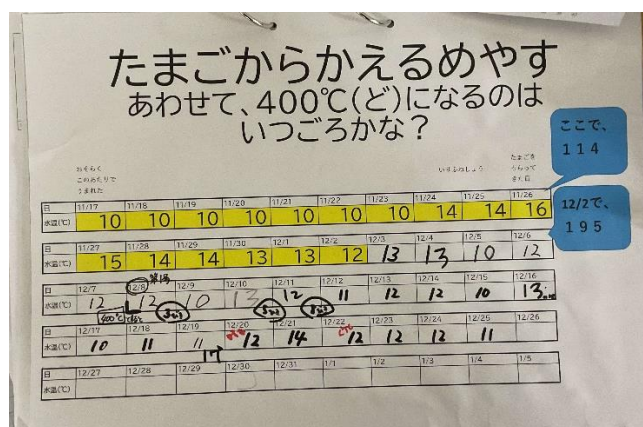 たまごからかえるめやす
あわせて、400℃(ど)になるのは
いつごろかな？
ここで、
114
おそらく
このあたりで
うまれた
たまごを
もらって
きた日
日 11/17 11/18 11/19 11/20 11/21 11/22 11/23 11/24 11/25 11/26
水温(℃) 10 10 10 10 10 10 10 14 14 16
12/2で、
195
日 11/27 11/28 11/29 11/30 12/1 12/2 12/3 12/4 12/5 12/6
水温(℃) 15 14 14 13 13 12 13 13 10 12
日 12/7 12/8 12/9 12/10 12/11 12/12 12/13 12/14 12/15 12/16
水温(℃) 12 12 10 13 12 11 12 12 10 13
400℃
日 12/17 12/18 12/19 12/20 12/21 12/22 12/23 12/24 12/25 12/26
水温(℃) 10 11 11 12 14 12 12 12 11
17
日 12/27 12/28 12/29 12/30 12/31 1/1 1/2 1/3 1/4 1/5
水温(℃)